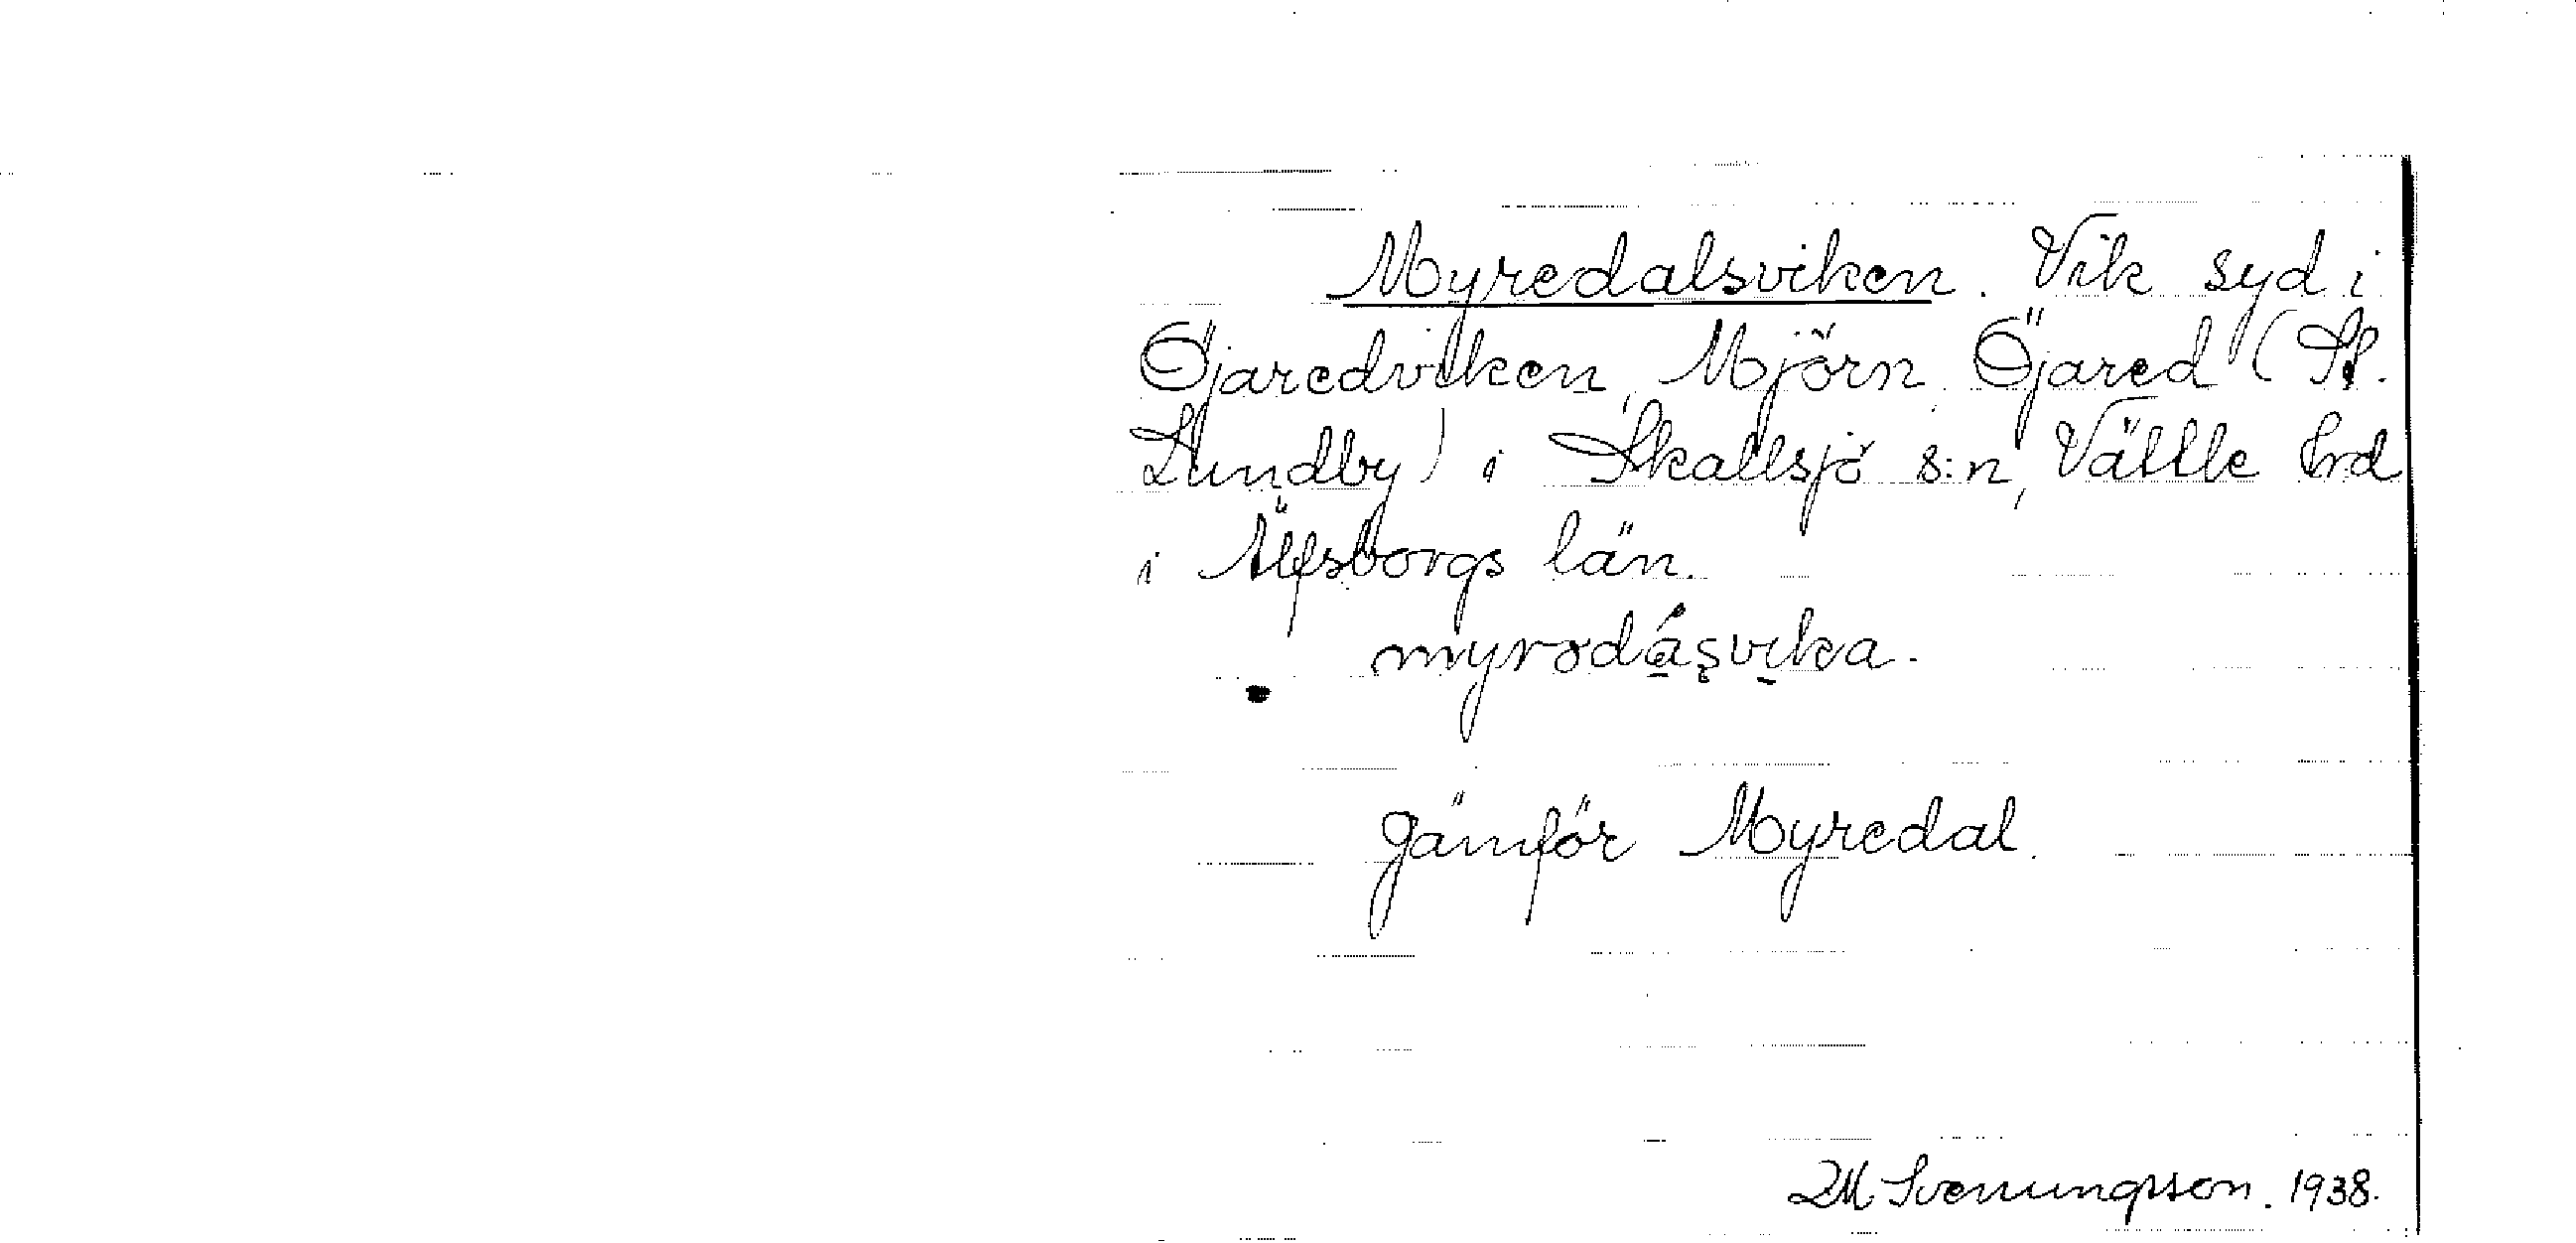 Myredalsviken. Vik syd i
Öjaredviken, Mjörn, Öjared (St.
Lundby) i Skallsjö s:n, Vättle hrd
i Älfsborgs län.
myrədásvika.
Jämför Myredal.
LM Svenungsson. 1938.